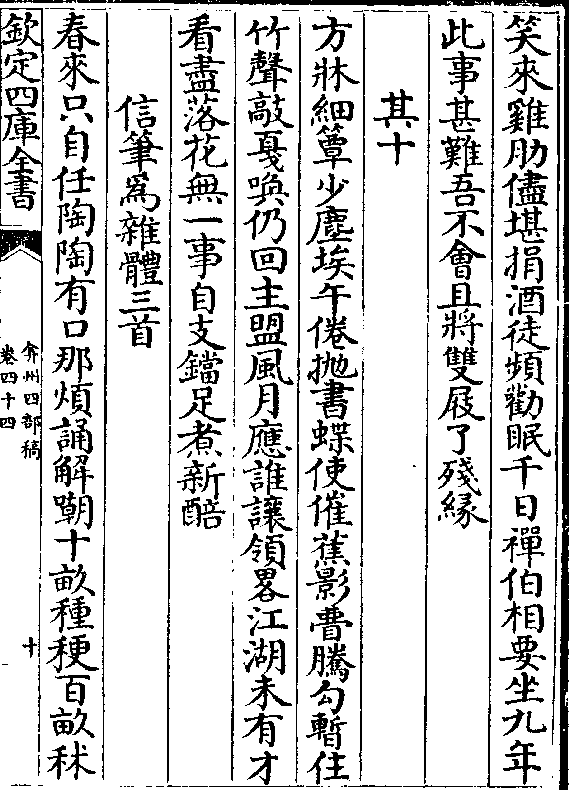 笑來雞肋儘堪捐酒徒頻勸眠千日禪伯相要坐九年
此事甚難吾不會且將雙屐了殘緣
其十
方牀細簟少塵埃午倦抛書蝶使催蕉影瞢騰勾暫住
竹聲敲戛喚仍回主盟風月應誰讓領畧江湖未有才
看盡落花無一事自支鐺足煮新醅
信筆爲雜體三首
春來只自任陶陶有口那煩誦解嘲十畝種稉百畝秫
欽定四庫全書
弇州四部稿
卷四十四
十